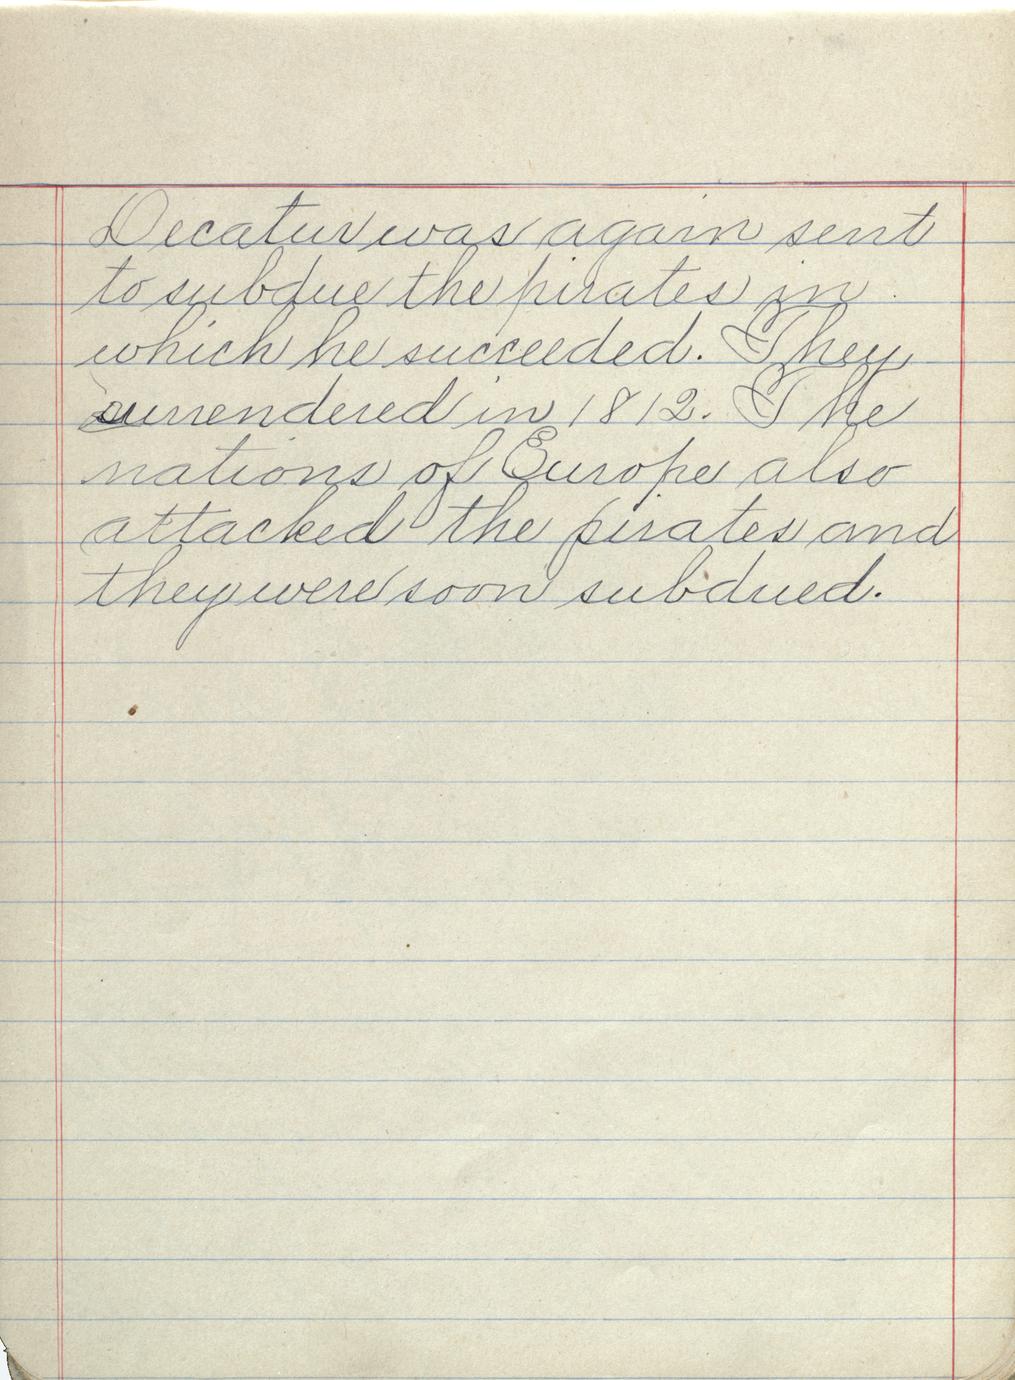 Decatur was again sent
to subdue the pirates in
which he succeeded. They
surrendered in 1812. The
nations of Europe also
attacked the pirates and
they were soon subdued.